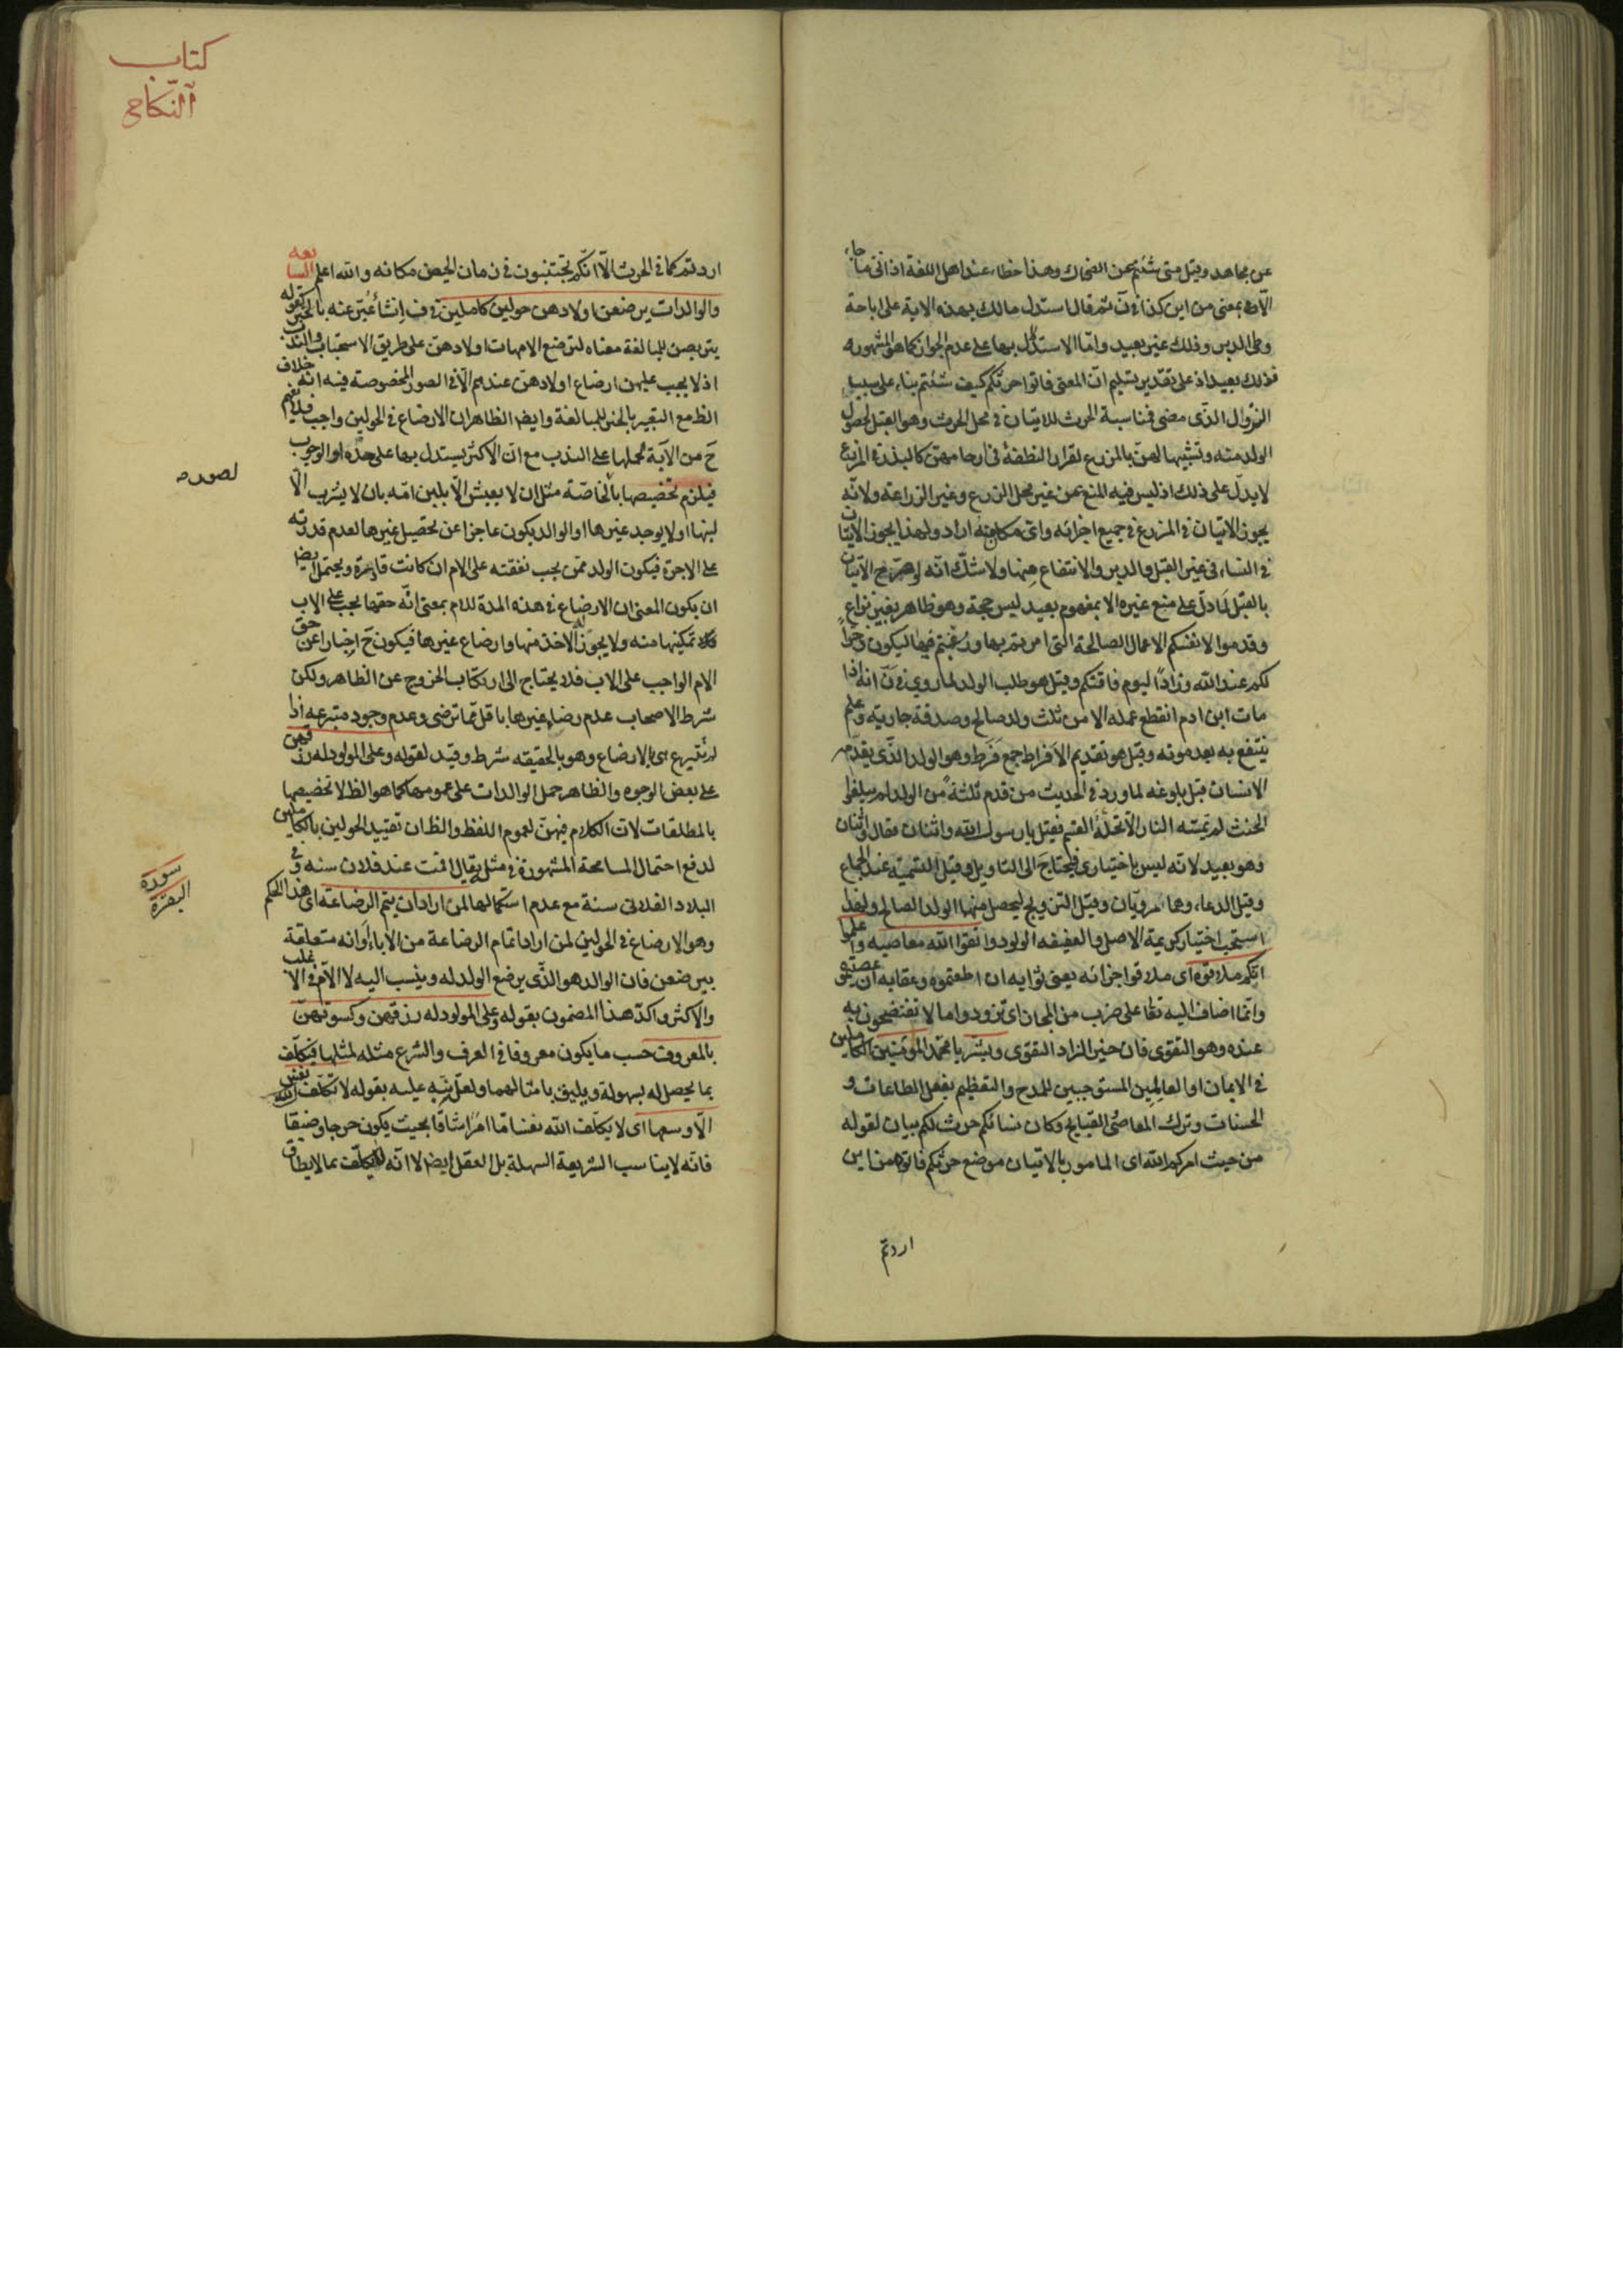 عن مجاهد وقيل متى شئتم عن الضحاك وهذا خطاء عند اهل اللغة اذ انى ما جاء
الا بمعنى من اين كذا في ن ثم قال استدل مالك بهذه الاية على اباحة
وطى الدبر وذلك غير بعيد واما الاستدلال بها على عدم الجواز كما هو المشهور
فذلك بعيد اذ على تقدير تسليم ان المعنى فاتوا حرثكم كيف شئتم بناء على سبب
النزول الذى مضى فمناسبة الحرث للاتيان في محل الحرث وهو القبل لحصول
الولد منه وتشبيها لهن بالمزرع لقرار النطفة في ارحامهن كالبذر في المزرع
لا يدل على ذلك اذ ليس فيه المنع عن غير محل الزرع وغير الزراعة ولانه
يجوز الاتيان في المزرع في جميع اجزائه واى مكان منه اراد ولهذا يجوز الاتيان
في النساء في غير القبل والدبر والانتفاع منها ولا شك انه لو صرح الاتيان
بالقبل لما دل على منع غيره الا بمفهوم بعيد ليس حجة وهو ظاهر بغير نزاع
وقدموا لانفسكم الاعمال الصالحة التى امرتم بها ورغبتم فيها ليكون ذخرا
لكم عند الله وزادا ليوم فاقتكم وقيل هو طلب الولد لما روى في ن انه اذا
مات ابن ادم انقطع عمله الا من ثلث ولد صالح وصدقة جارية وعلم
ينتفع به بعد موته وقيل هو تقديم الافراط جمع فرط وهو الولد الذى يقدم
الانسان قبل بلوغه لما ورد في الحديث من قدم ثلثة من الولد لم يبلغوا
الحنث لم تمسه النار الا تحلة القسم فقيل يا رسول الله واثنان فقال واثنان
وهو بعيد لانه ليس باختيارى فيحتاج الى التاويل وقيل التسمية عند الجماع
وقيل الدعاء وهما مرويان وقيل التزويج ليحصل منها الولد الصالح ولهذا
استحب اختيار كريمة الاصل والعفيفه الولود واتقوا الله معاصيه واعلموا
انكم ملاقوه اى ملاقوا جزائه يعنى ثوابه ان اطعتموه وعقابه ان عصيتموه
وانما اضاف اليه تعا على ضرب من المجاز اى تزودوا ما لا تفتضحون به
عنده وهو التقوى فان خير الزاد التقوى وبشر يا محمد المؤمنين الكاملين
في الايمان او العالمين المستوجبين للمدح والتعظيم بفعل الطاعات و
الحسنات وترك المعاصى القبايح وكان نسائكم حرث لكم بيان لقوله
من حيث امركم الله اى المامور بالاتيان موضع حرثكم فاتوهن من اين
اردتم
كتاب
النكاح
اردتم كما في الحرث الا انكم تجتنبون في زمان الحيض مكانه والله اعلم السابعه
والوالدات يرضعن اولادهن حولين كاملين في ف انشأ عبر عنه بالخبر كقوله
يتربصن للمبالغة معناه لترضع الامهات اولادهن على طريق الاستحباب والندب
اذ لا يجب عليهن ارضاع اولادهن عندهم الا في الصور المخصوصة فيه انه خلاف
الظ مع التعبير بالخبر للمبالغة وايضا الظاهر ان الارضاع في الحولين واجب فلا يفهم
ح من الآية لحملها على الندب مع ان الاكثر يستدل بها على هذه او الوجوب
فيلزم تخصيصها بالخاصة مثل ان لا يعيش الا بلبن امه بان لا يشرب الا
لبنها او لا يوجد غيرها او الوالد يكون عاجزا عن تحصيل غيرها لعدم قدرته
على الاجرة فيكون الولد ممن يجب نفقته على الام ان كانت قادرة ويحتمل ايضا
ان يكون المعنى ان الارضاع في هذه المدة للام بمعنى انه حقها يجب على الاب
تمكينها منه ولا يجوز له الاخذ منها وارضاع غيرها فيكون ح اخبارا عن حق
الام الواجب على الاب فلا يحتاج الى ارتكاب الخروج عن الظاهر ولكن
شرط الاصحاب عدم رضاء غيرها باقل مما ترضى وعدم وجود متبرعه اذا
لم تتبرع هى بالارضاع وهو بالحقيقه شرط وقيد لقوله وعلى المولود له رزقهن
على بعض الوجوه والظاهر حمل الوالدات على عمومها كما هو الظ لا تخصيصها
بالمطلقات لان الكلام فيهن لعموم اللفظ والظ ان تقييد الحولين بالكاملين
لدفع احتمال المسامحة المشهورة في مثل يقال اقمت عند فلان سنه وفي
البلاد الفلانى سنة مع عدم استكمالها لمن اراد ان يتم الرضاعة اى هذا الحكم
وهو الارضاع في الحولين لمن اراد اتمام الرضاعة من الاباء او انه متعلقة
بيرضعن فان الوالد هو الذى يرضع الولد له وينسب اليه لا الام في الاغلب
والاكثر واكد هذا المضمون بقوله وعلى المولود له رزقهن وكسوتهن
بالمعروف حسب ما يكون معروفا في العرف والشرع مثله لمثلها فيكلف
بما يحصل له بسهولة ويليق بامثالهما ولعل نبه عليه بقوله لا تكلف نفس
الا وسعها اى لا يكلف الله نفسا ما امرا شاقا بحيث يكون حرجا وضيقا
فانه لا يناسب الشريعة السهلة بل العقل ايضا لا انه لا يكلف بما لا يطاق
سورة
البقرة